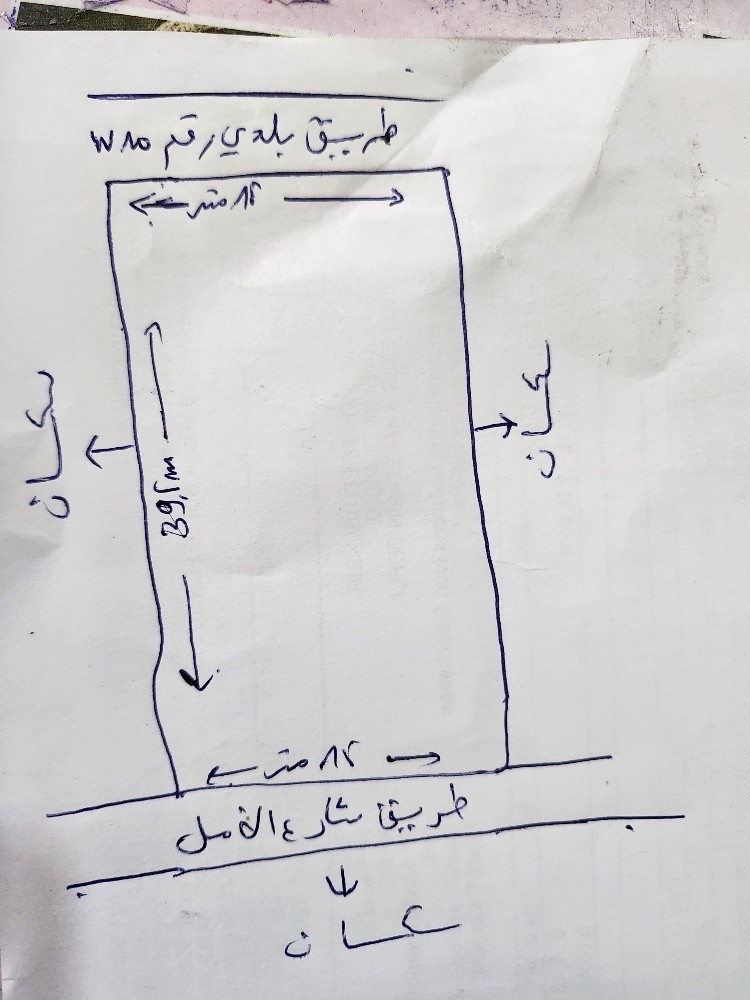 طريق بلدي رقم
٨٢ متر
سكان
سكان
39,2m
٨٢ متر
طريق شارع الأمل
سكان